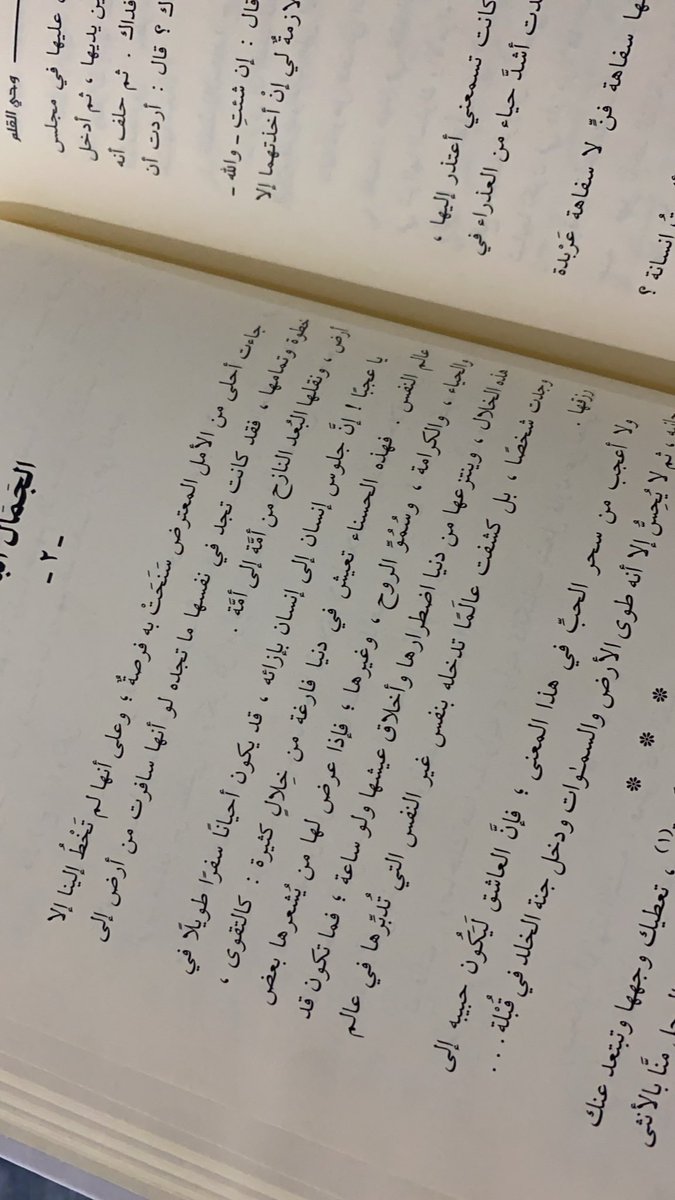 وحي القلم
عليها في مجلس
بين يديها ، ثم أدخل
فداك . ثم حلف أنه
ك ؟ قال : أردت أن
قال : إن شئتِ - والله -
لازمةٌ لي إنْ أخذتهما إلا
كانت تسمعني أعتذر إليها ،
أشدَّ حياء من العذراء في
سفاهة فنٍّ لا سفاهة عَرْبدة
إنسانة ؟
الجَمَال
- ٢ -
جاءت أحلى من الأمل المعترض سَنَحَتْ به فرصةٌ ؛ وعلى أنها لم تَخْطُ إلينا إلا
خطوة وتمامها ، فقد كانت تجد في نفسها ما تجده لو أنها سافرت من أرض إلى
أرض ، ونقلها البُعد النازح من أمَّة إلى أمَّة .
يا عجبًا ! إنَّ جلوس إنسان إلى إنسان بإزائه ، قد يكون أحيانًا سفرًا طويلًا في
عالم النفس . فهذه الحسناء تعيش في دنيا فارغة من خِلالٍ كثيرة : كالتقوى ،
والحياء ، والكرامة ، وسُمُوِّ الروح ، وغيرها ؛ فإذا عرض لها من يُشعرها بعض
هذه الخلال ، وينتزعها من دنيا اضطرارها وأخلاق عيشها ولو ساعة ؛ فما تكون قد
وجدت شخصًا ، بل كشفت عالَمًا تدخله بنفس غير النفس التي تُدبِّرها في عالم
رزقها .
ولا أعجب من سحر الحبِّ في هذا المعنى ؛ فإنَّ العاشق لَيَكُون حبيبه إلى
جانبه ، ثم لا يُحِسُّ إلا أنه طوى الأرض والسمٰوات ودخل جنة الخلد في قُبْلة ...
* * *
(١) ، تعطيك وجهها وتبتعد عنك
منَّا بالأنثى